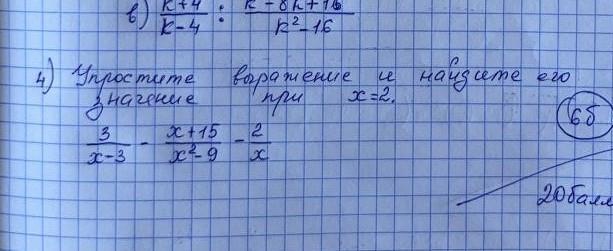 в) k+4/k-4 : k²-8k+16/k²-16
4) Упростите выражение и найдите его
значение при x=2.
3/x-3 - x+15/x²-9 - 2/x
6б
20балл